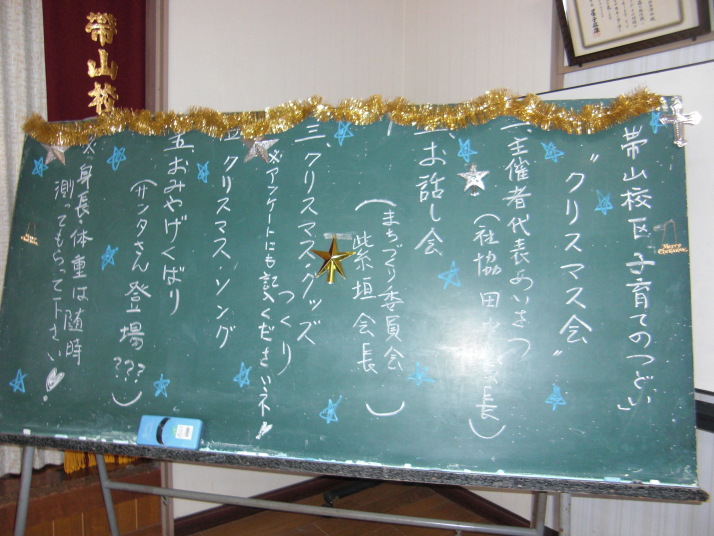 帯山校区 子育てのつどい
"クリスマス会"
一、主催者代表あいさつ
(社協 田 長)
二、お話し会
(まちづくり委員会
紫垣 会長)
三、クリスマス・グッズ
つくり
※アンケートにも記入くださいネ
四、クリスマス・ソング
五、おみやげくばり
(サンタさん登場???)
※身長・体重は随時
測ってもらって下さい
帯山校
Merry
Christmas